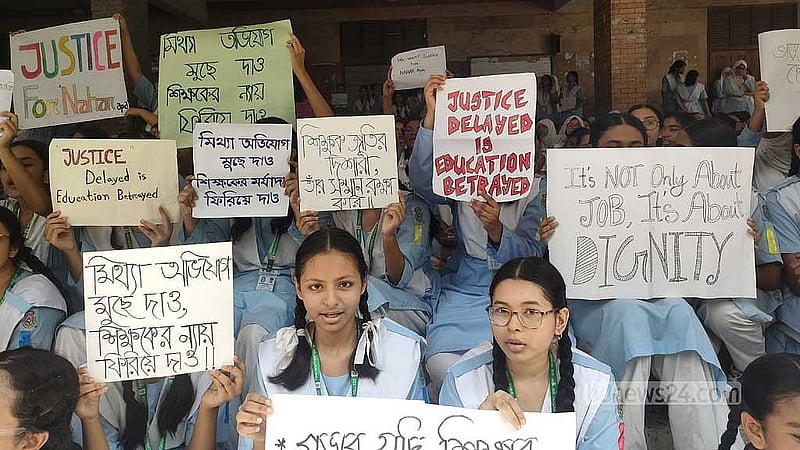 JUSTICE
For Nahar Apa
মিথ্যা অভিযোগ
মুছে দাও
শিক্ষকের ন্যায়
ফিরিয়ে দাও
We want Justice
For
NAHAR Apa
JUSTICE
Delayed is
Education Betrayed
মিথ্যা অভিযোগ
মুছে দাও
শিক্ষকের মর্যাদা
ফিরিয়ে দাও
শিক্ষক জাতির
দিশারী,
তাঁর সম্মান রক্ষা
করি।
JUSTICE
DELAYED IS
EDUCATION
BETRAYED
It's NOT Only About
JOB, Its About
DIGNITY
মিথ্যা অভিযোগ
মুছে দাও,
শিক্ষকের ন্যায়
ফিরিয়ে দাও!!
news24.com